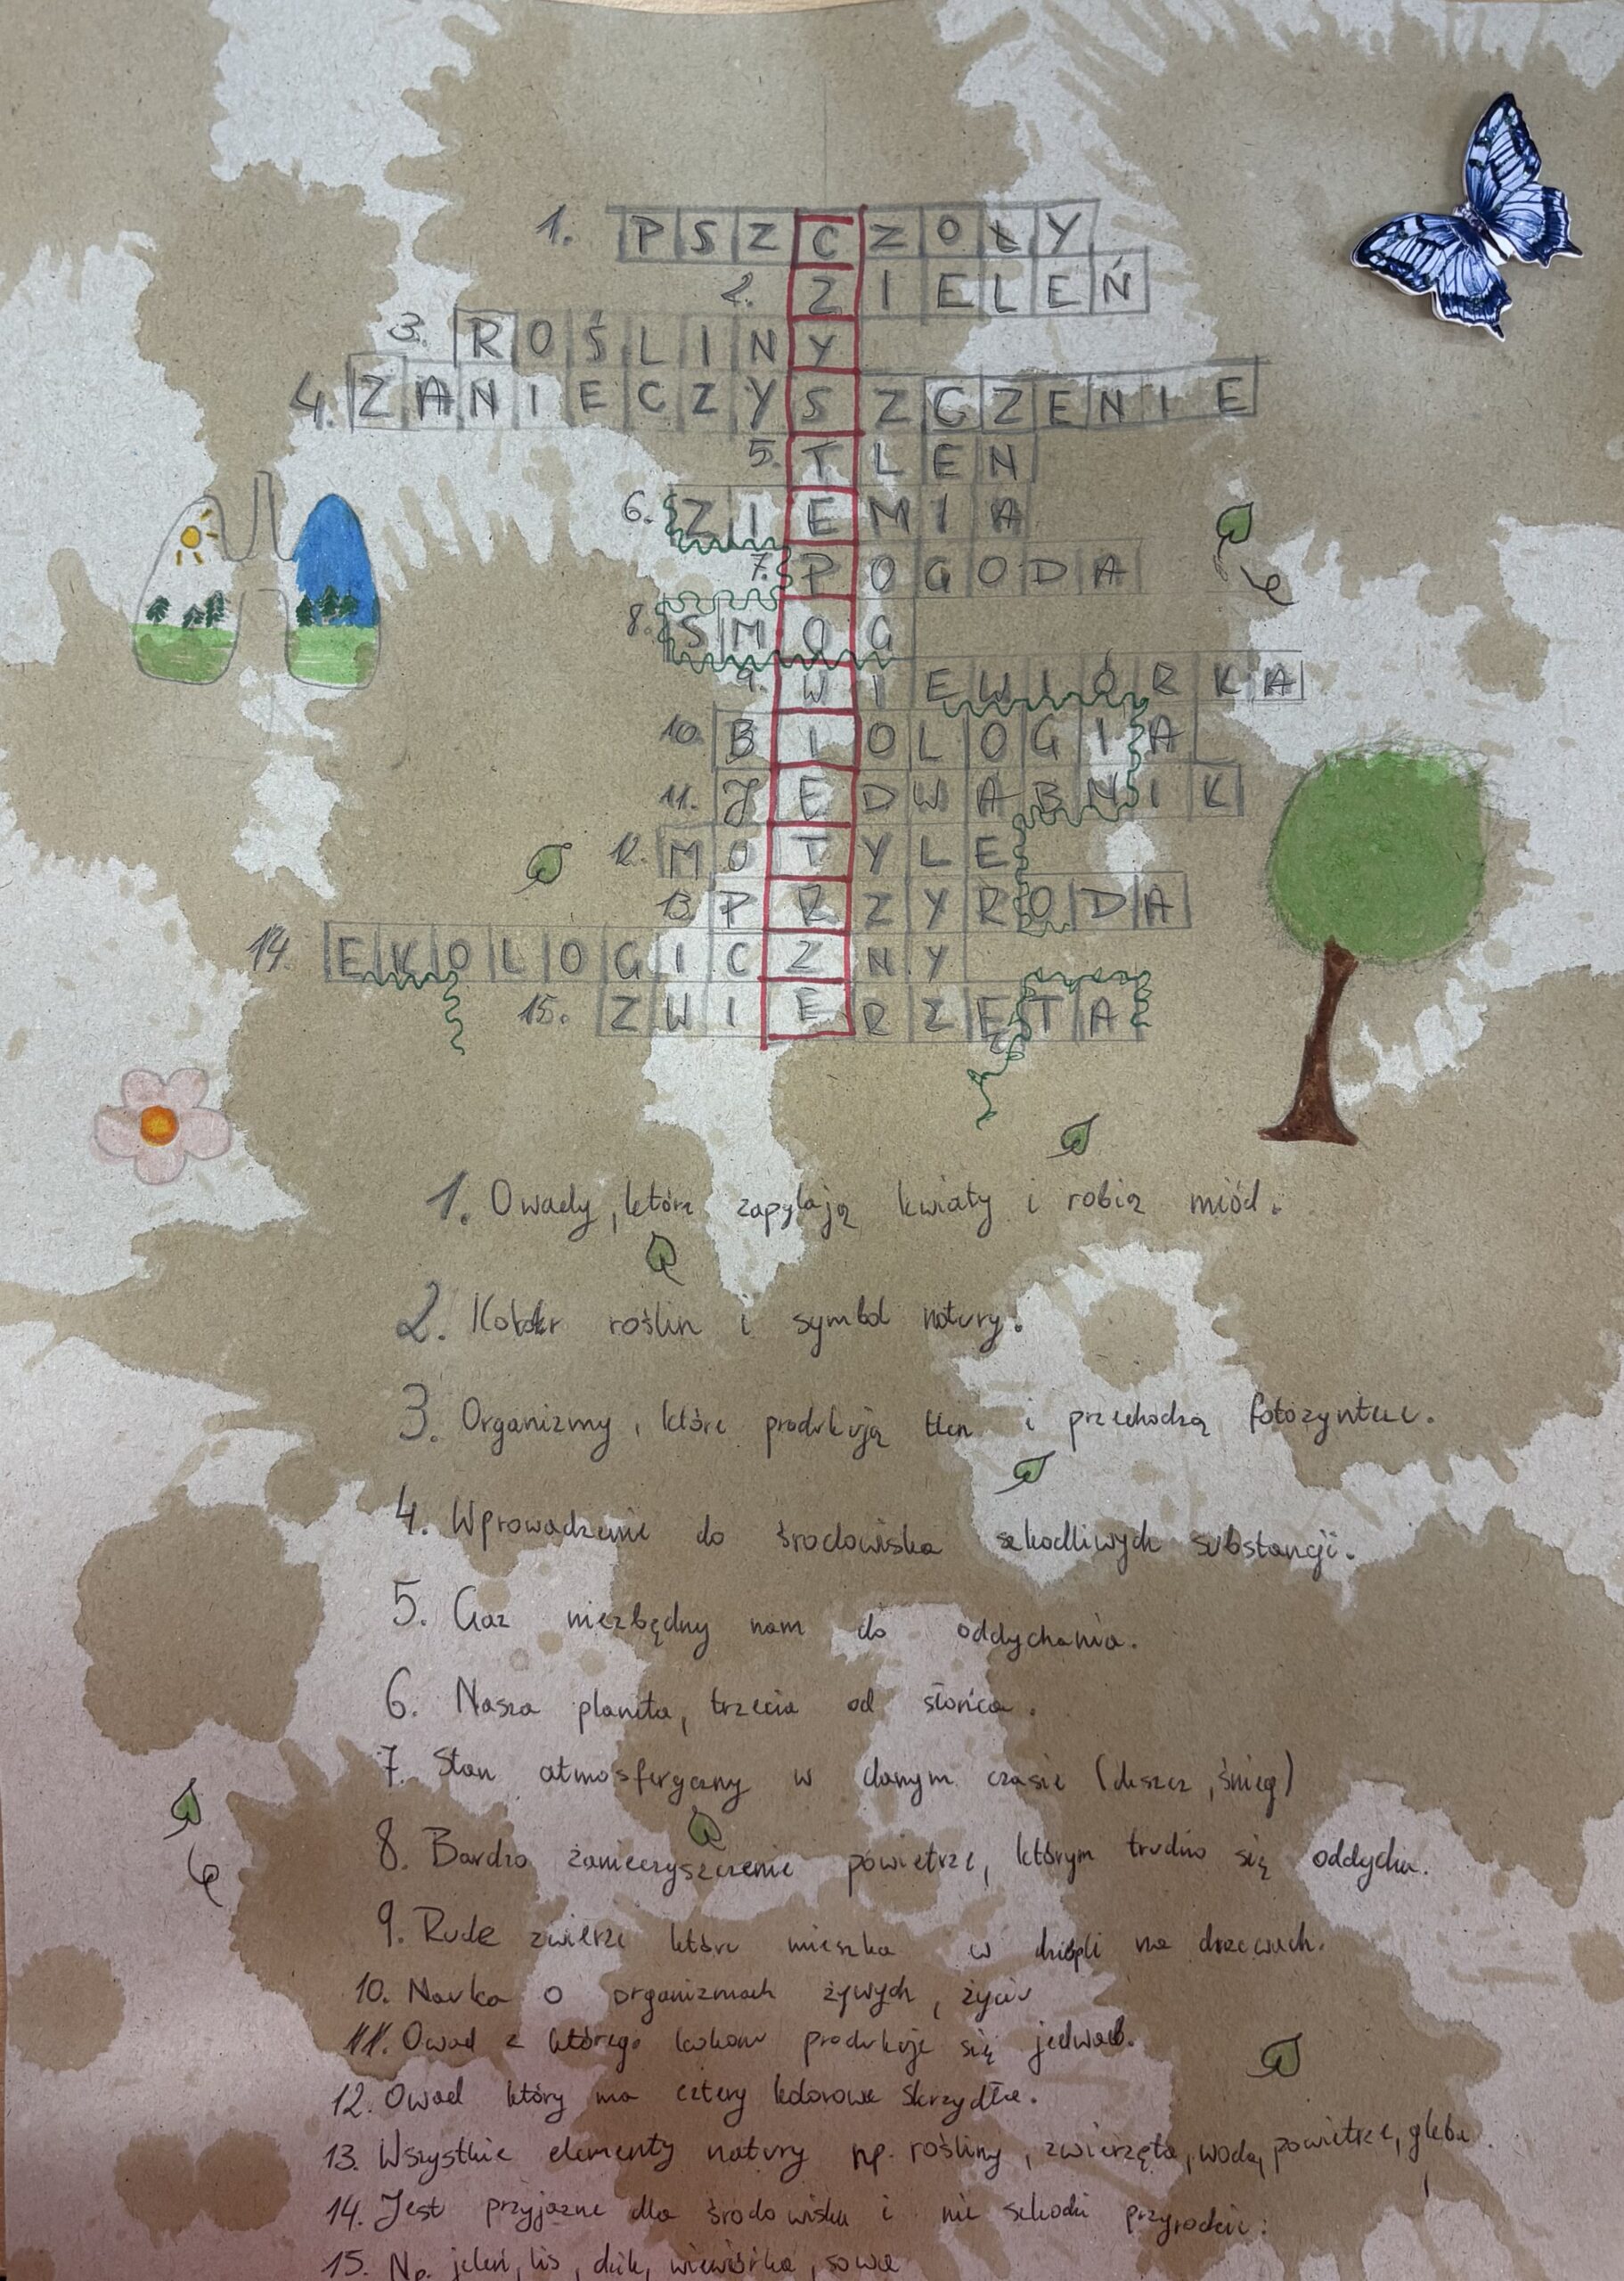 1. PSZCZOŁY
2. ZIELEŃ
3. ROŚLINY
4. ZANIECZYSZCZENIE
5. TLEN
6. ZIEMIA
7. POGODA
8. SMOG
9. WIEWIÓRKA
10. BIOLOGIA
11. JEDWABNIK
12. MOTYLE
13. PRZYRODA
14. EKOLOGICZNY
15. ZWIERZĘTA
1. Owady, które zapylają kwiaty i robią miód.
2. Kolor roślin i symbol natury.
3. Organizmy, które produkują tlen i przechodzą fotozyntezе.
4. Wprowadzenie do środowiska szkodliwych substancji.
5. Gaz niezbędny nam do oddychania.
6. Nasza planeta, trzecia od słońca.
7. Stan atmosferyczny w danym czasie (deszcz, śnieg)
8. Bardzo zanieczyszczenie powietrze, którym trudno się oddycha.
9. Rude zwierze które mieszka w dziupli na drzewach.
10. Nauka o organizmach żywych, życiu
11. Owad z którego kokonu produkuje się jedwab.
12. Owad który ma cztery kolorowe skrzydła.
13. Wszystkie elementy natury np. rośliny, zwierzęta, woda, powietrze, gleba.
14. Jest przyjazne dla środowiska i nie szkodzi przyrodzie.
15. Np. jeleń, lis, dzik, wiewiórka, sowa